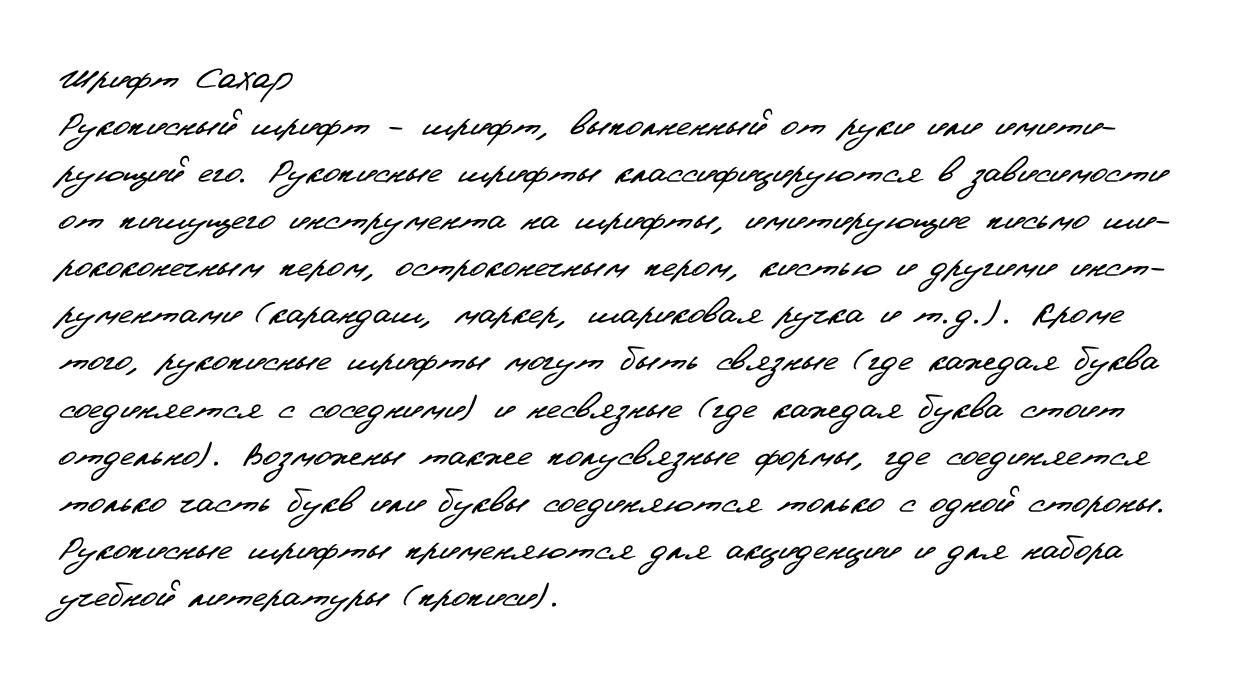 Шрифт Сахар
Рукописный шрифт - шрифт, выполненный от руки или имити-
рующий его. Рукописные шрифты классифицируются в зависимости
от пишущего инструмента на шрифты, имитирующие письмо ши-
рококонечным пером, остроконечным пером, кистью и другими инст-
рументами (карандаш, маркер, шариковая ручка и т.д.). Кроме
того, рукописные шрифты могут быть связные (где каждая буква
соединяется с соседними) и несвязные (где каждая буква стоит
отдельно). Возможны также полусвязные формы, где соединяется
только часть букв или буквы соединяются только с одной стороны.
Рукописные шрифты применяются для акциденции и для набора
учебной литературы (прописи).